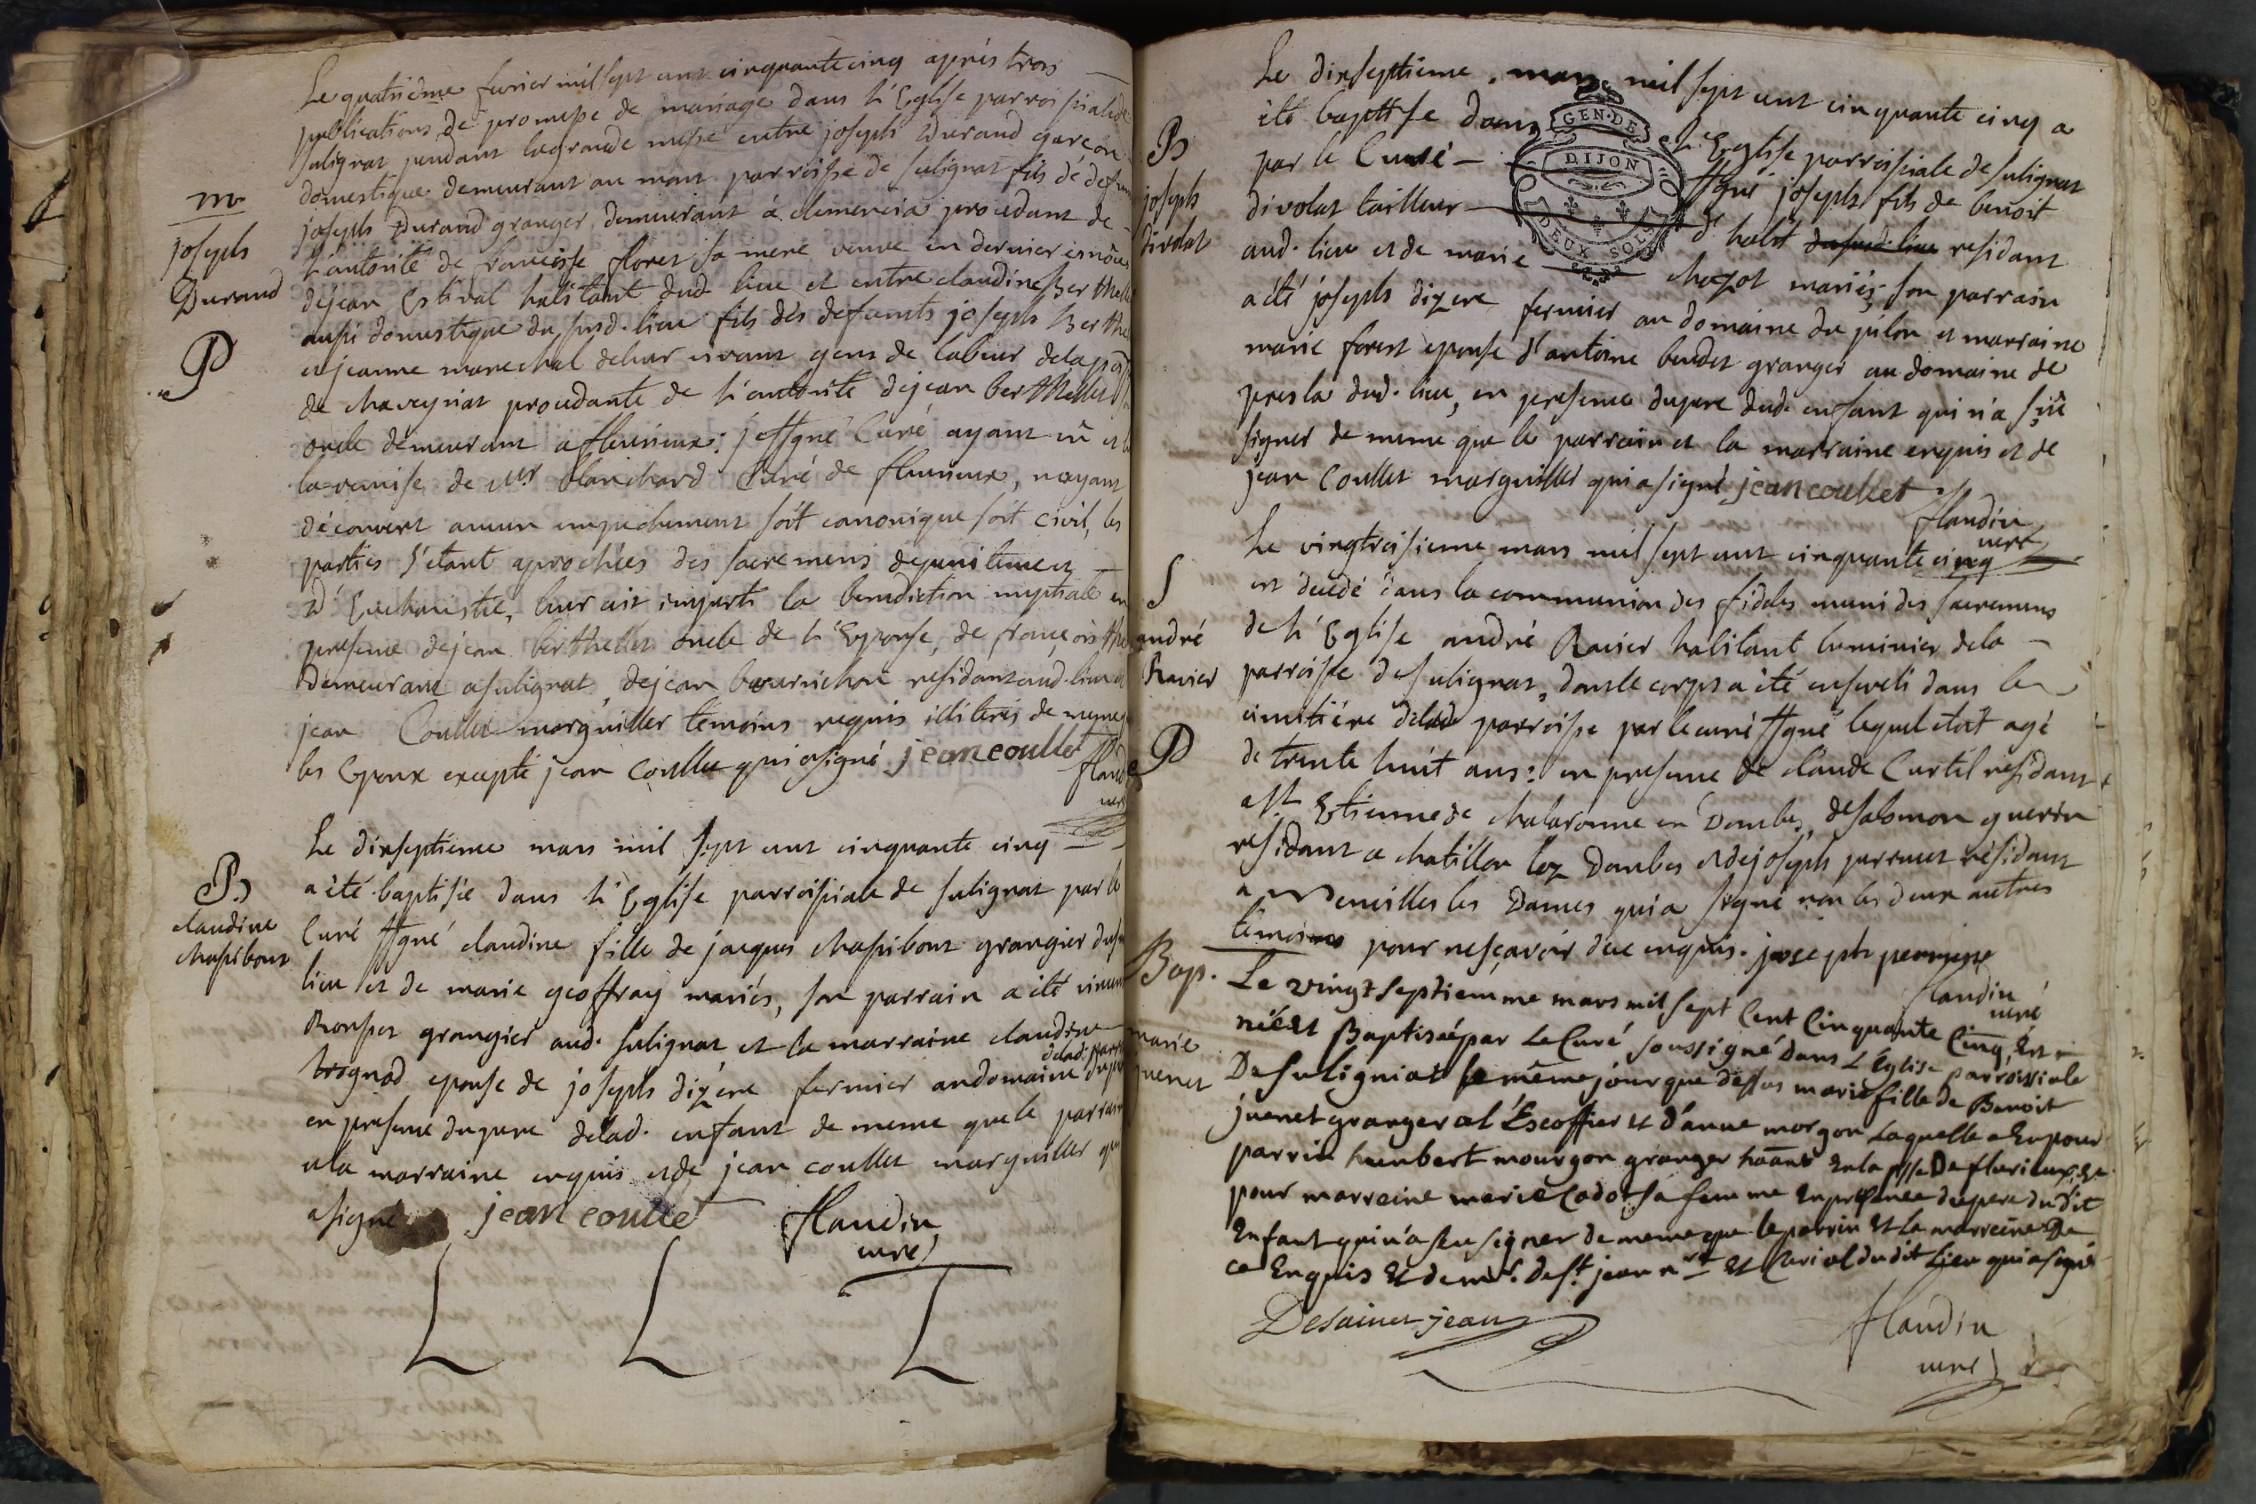 Le quatrième fevrier mil sept cent cinquante cinq après trois
publications de promesse de mariage dans l'Eglise parroissiale de
sulignat pendant la grande messe entre joseph Durand garcon
domestique demeurant au mont parroisse de sulignat fils de defunt
joseph Durand granger demeurant à clemencia procedant de
l'autorité de francoise flores sa mere veuve en dernieres nôces
de jean Estival habitant dud. lieu et entre claudine Berthelet
aussi domestique du susd. lieu fils des defunts joseph Berthe
et jeanne marechal de leur vivant gens de labeur de la p
de chaveyriat procedante de l'autorité de jean berthelet
oncle demeurant a fleurieux: je ssigné Curé ayant vû et
la remise de Mr blanchard Curé de fleurieux, n'ayant
découvert aucun empechement soit canonique soit civil, les
parties s'étant aprochées des sacremens de penitence
d'Euchaistie, leur ait imparti la benediction nuptiale en
presence de jean berthelet oncle de l'Epouse, de françois the
demeurant a sulignat, de jean bournichon residant aud. lieu et
jean Coullet marguiller temoins requis illiteres de meme
les Epoux excepté jean Coullet qui a signé jean coullet
flandin
curé
m
joseph
Durand
P
Le dixseptieme mars mil sept cent cinquante cinq
a été baptisée dans l'Eglise parroissiale de sulignat par le
Curé ssigné claudine fille de jacques chassibout grangier dusd
lieu et de marie geoffray mariés, son parrain a été vincent
Ronset grangier aud. sulignat et la marraine claudine
trognad epouse de joseph dizere fermier au domaine du p
delad. parr
en presence du pere delad. enfant de meme que le parrain
et la marraine enquis et de jean coullet marguiller qui
a signé jean coullet flandin
curé
B
claudine
chassibout
Le dixseptieme mars mil sept cent cinquante cinq a
été baptisé dans l'Eglise parroissiale de sulignat
par le Curé ssigné joseph fils de benoit
divolat tailleur d'habit dusud. lieu residant
aud. lieu et de marie chazot mariés son parrain
a été joseph dizere fermier au domaine du pilon et marraine
marie forest epouse d'antoine boudet granger au domaine de
presla dud. lieu, en presence du pere dud. enfant qui n'a sçû
signer de meme que le parrain et la marraine enquis et de
jean Coullet marguiller qui a signé jean coullet
flandin
curé
B
joseph
divolat
GEN·DE
DIJON
DEUX SOLS
Le vingtroisieme mars mil sept cent cinquante cinq
est decedé dans la communion des fideles muni des sacremens
de l'Eglise andré Ravier habitant luminier de la
parroisse de sulignat, dont le corps a été enseveli dans le
cimitiére delad parroisse par le curé ssigné lequel étoit agé
de trente huit ans: en presence de claude Curtil residant
a St Etienne de chalaronne en Dombes, de salomon guerin
residant a chatillon lez Dombes et de joseph perruset résidant
a Neuvilles les Dames qui a signé non les deux autres
temoins pour ne sçavoir de ce enquis. joseph
flandin
curé
S
andré
Ravier
P
Le vingt septiemme mars mil sept Cent Cinquante Cinq, Est
né et Baptisée par Le Curé soussigné dans L'Eglise parroissiale
De suligniat le même jour que dessus marie fille de Benoit
juenet granger al Escoffier et d'anne morgon Laquelle a Eu pour
parrin humbert mourgon granger en la psse De flurieux, et
pour marreine marie Cadot sa femme En presence du pere du dit
Enfant qui n'a seu signer de meme que le parrin et la marreine De
ce Enquis Et de mr. de st. jean nre Et Curial du dit Lieu qui a signé
Desaint jean flandin
curé
Bap.
marie
juenet